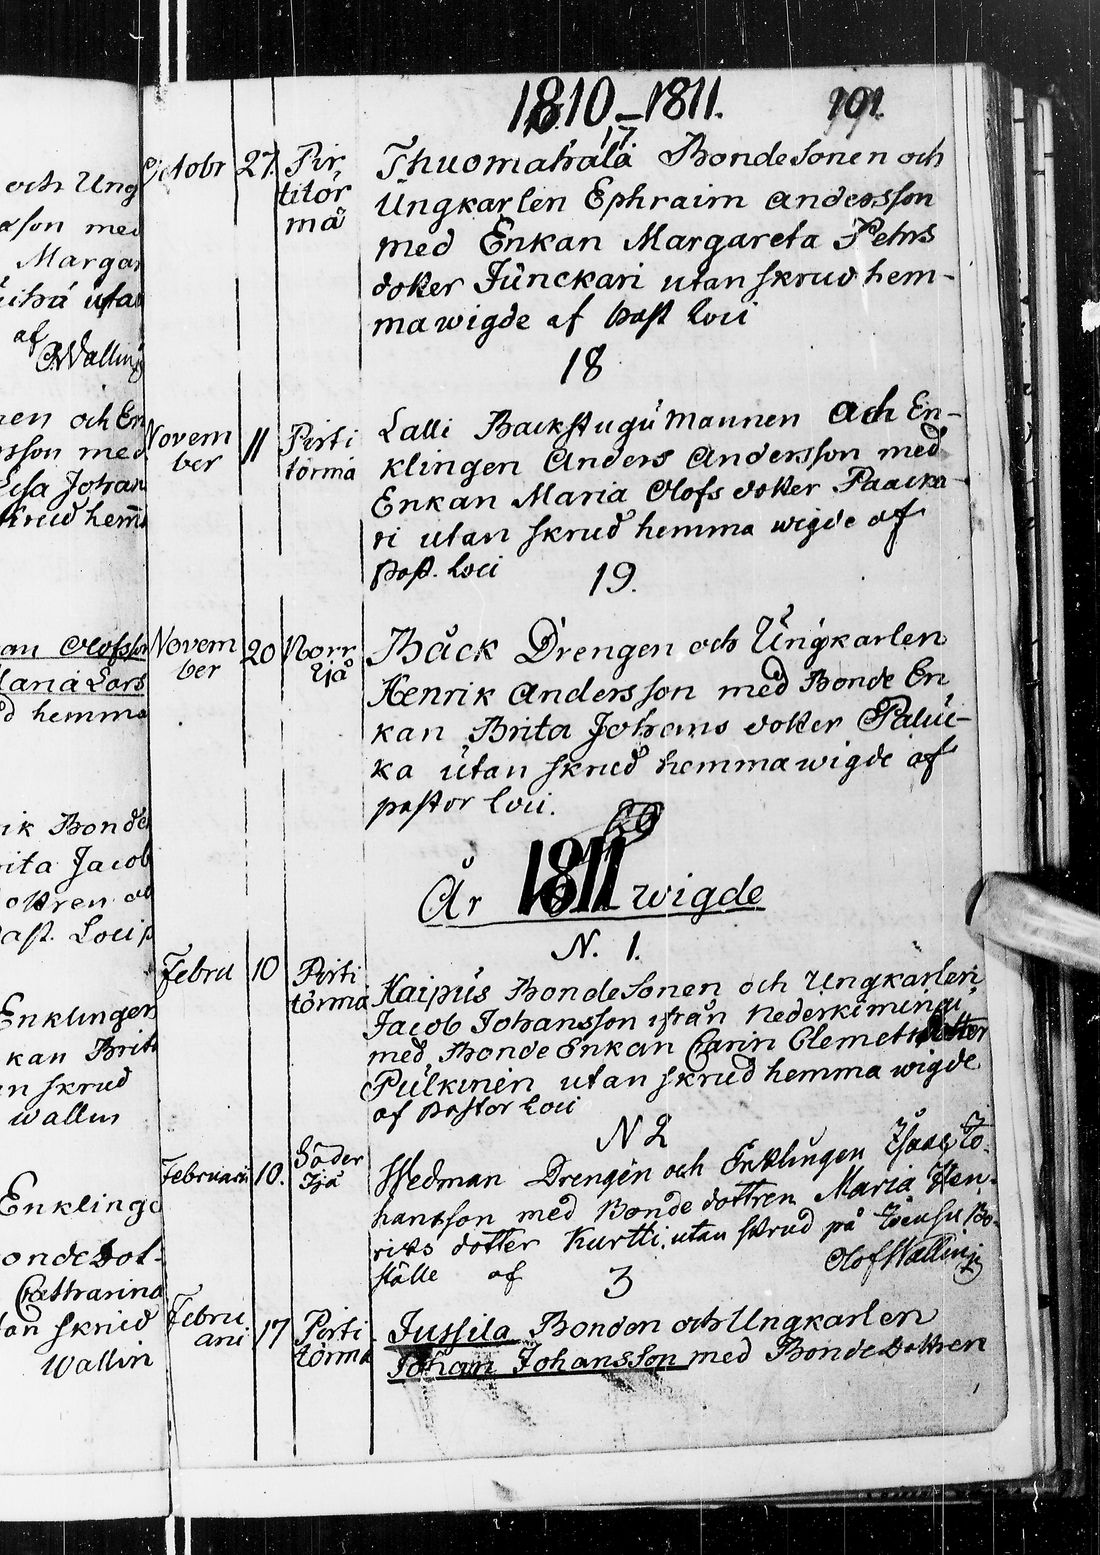 1810–1811. 101.
och Ung
son med
Margar
utan
af
OWallin
nen och En
sson med
Lisa Johan
skrud hema
an Olofsson
Maria Lars
d hemma
ik Bonde
rita Jacob
Past. Loci
Enklingen
kan Brita
an skrud
Wallin
Enklinge
onde Dot-
Catharina
tan skrud
Wallin
17.
Octobr 27. Pir- Thuomahala Bonde Sonen och
titör Ungkarlen Ephraim Andersson
mä med Enkan Margareta Pehrs
doter Junckari utan skrud hem-
ma wigde af Past Loci
18
Novem 11 Pirti Lalli Backstugu mannen och En-
ber törmä klingen Anders Andersson med
Enkan Maria Olofs doter Paacka-
ri utan skrud hemma wigde af
Past. Loci
19.
Novem 20 Norr Bäck Drengen och Ungkarlen
ber Ijå Henrik Andersson med Bonde En
kan Brita Johans dotter Paluc-
ka utan skrud hemma wigde af
pastor Loci.
År 1811 wigde
N. 1.
Febru 10 Pirti Haipus Bonde Sonen och Ungkarlen
törma Jacob Johansson ifrån Nederkimingi
med Bonde Enkan Carin Clemets dotter
Pulkinen utan skrud hemma wigde
af Pastor Loci
N 2
Februarii 10. Söder Wedman Drengen och Enklingen Isaac Jo-
Ijå hansson med Bonde dottren Maria Hen-
riks dotter Kurtti, utan skrud på Bo-
ställe af Olof Wallin
3
Febru 17 Pirti Jussila Bonden och Ungkarlen
arii törma Johan Johansson med Bonde Dottren